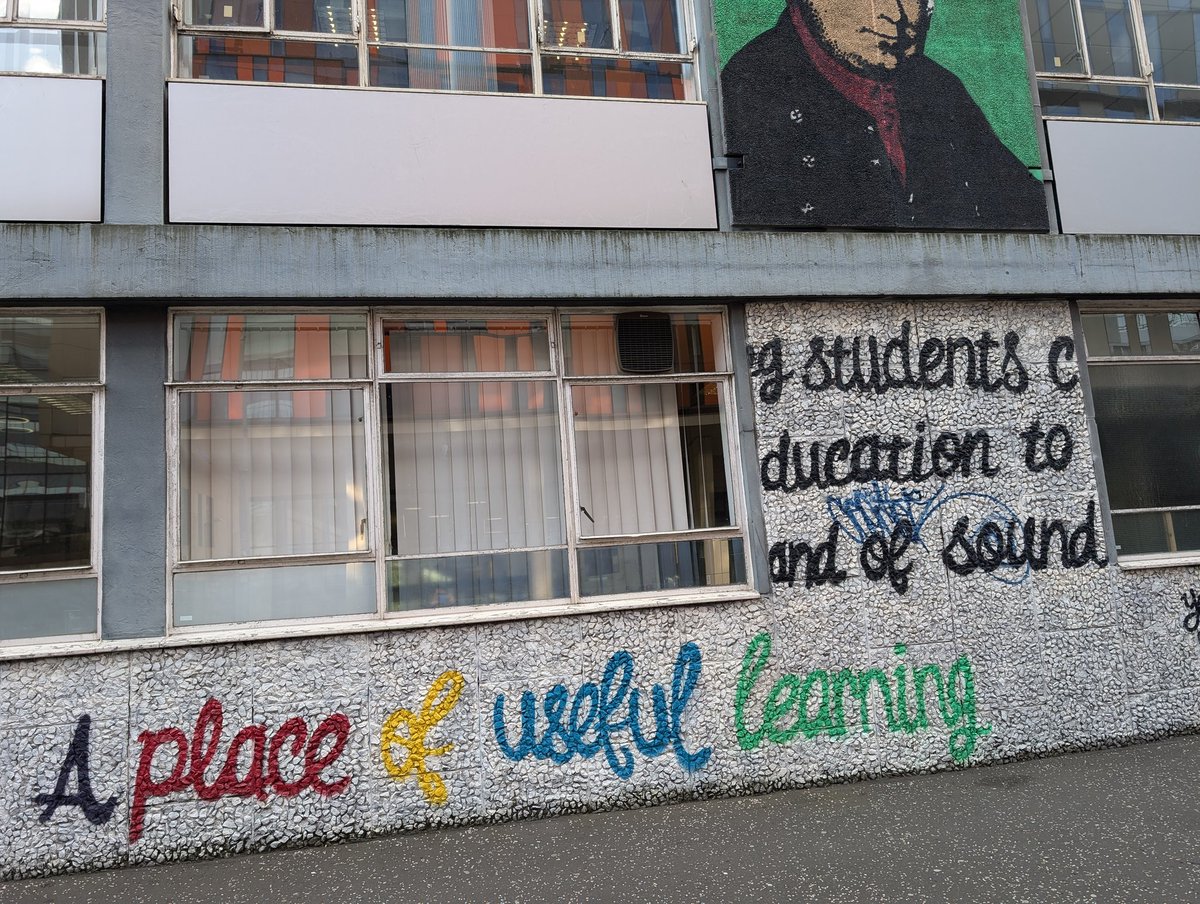 g students c
ducation to
and of sound
A place of useful learning